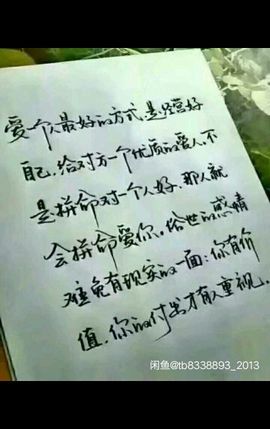 爱一个人最好的方式,是经营好
自己,给对方一个优质的爱人。不
是拼命对一个人好,那人就
会拼命爱你。俗世的感情
难免有现实的一面:你有价
值,你的付出才有人重视。
闲鱼@tb8338893_2013